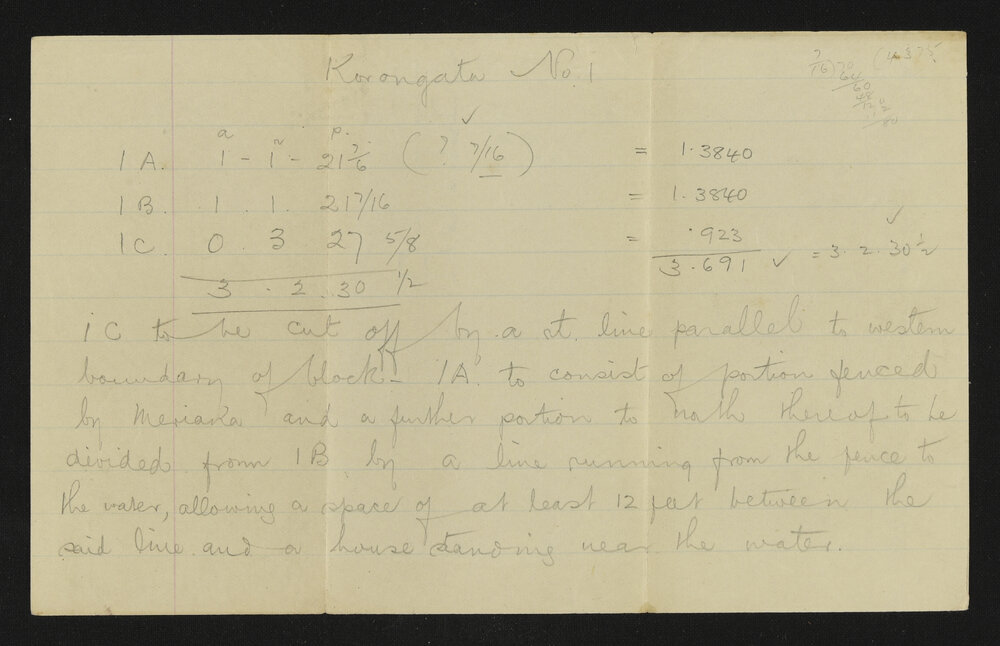 Korongata No. 1
7/16) 70 (.4375
64
60
48
120
112
80
a r p.
1A. 1 - 1 - 21 7/16 (? 7/16) ✓ = 1.3840
1B. 1. 1. 21 7/16 = 1.3840
1C. 0. 3. 27 5/8 = .923
3.691 ✓ = 3. 2. 30 1/2 ✓
3. 2. 30 1/2
1C to be cut off by a st. line parallel to western
boundary of block - 1A. to consist of portion fenced
by Meriaka and a further portion to north thereof to be
divided from 1B by a line running from the fence to
the water, allowing a space of at least 12 feet between the
said line and a house standing near the water.